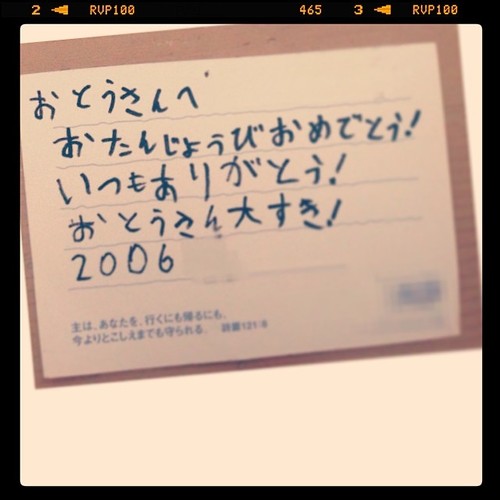 2 RVP100 465 3 RVP100
おとうさんへ
おたんじょうびおめでとう!
いつもありがとう!
おとうさん大すき!
2006
主は、あなたを、行くにも帰るにも、
今よりとこしえまでも守られる。 詩篇121:8